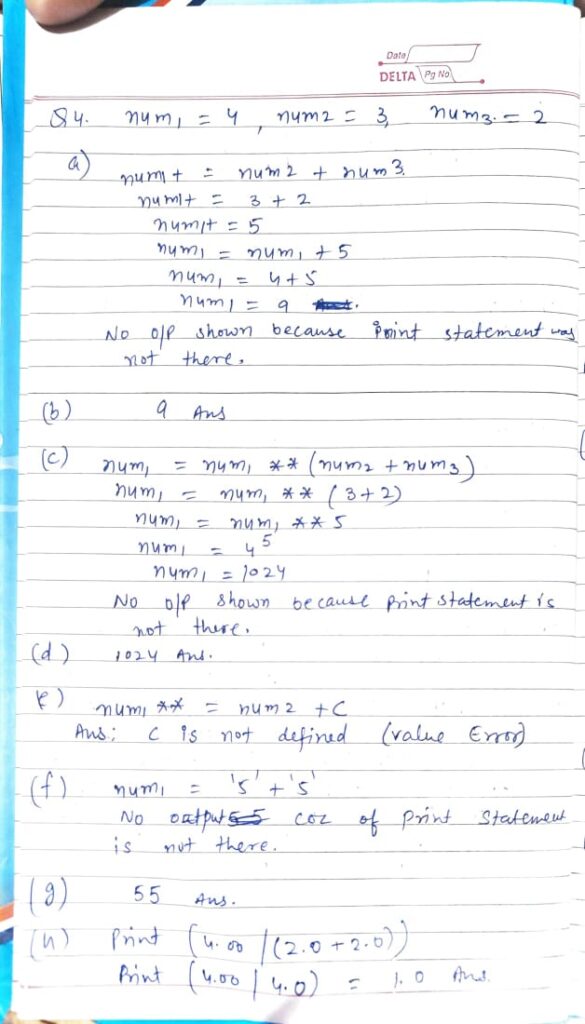 Date
DELTA Pg No
Q4. num1 = 4, num2 = 3, num3 = 2
a) num1+ = num2 + num3
num1+ = 3 + 2
num1+ = 5
num1 = num1 + 5
num1 = 4+5
num1 = 9
No o/p shown because print statement was
not there.
(b) 9 Ans
(c) num1 = num1 ** (num2 + num3)
num1 = num1 ** (3+2)
num1 = num1 ** 5
num1 = 4^5
num1 = 1024
No o/p shown because print statement is
not there.
(d) 1024 Ans.
e) num1 ** = num2 + C
Ans: C is not defined (value Error)
(f) num1 = '5' + '5'
No output coz of print statement
is not there.
(g) 55 Ans.
(h) Print (4.00 / (2.0 + 2.0))
Print (4.00 / 4.0) = 1.0 Ans.